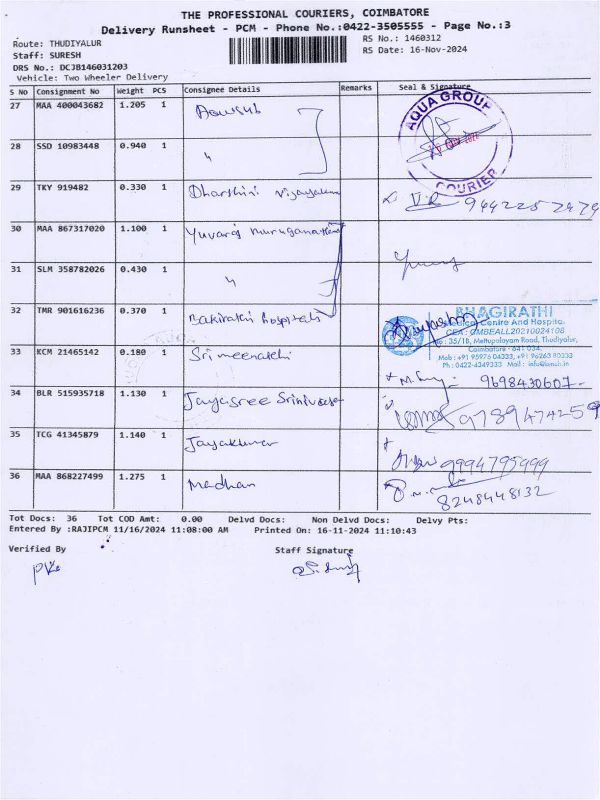 THE PROFESSIONAL COURIERS, COIMBATORE
Delivery Runsheet - PCM - Phone No.:0422-3505555 - Page No.:3
Route: THUDIYALUR
RS No.: 1460312
Staff: SURESH
RS Date: 16-Nov-2024
DRS No.: DCJB146031203
Vehicle: Two Wheeler Delivery
S No Consignment No Weight PCS Consignee Details Remarks Seal & Signature
27 MAA 400043682 1.205 1
AQUA GROUP
COURIER
28 SSD 10983448 0.940 1 "
29 TKY 919482 0.330 1 Dharshini Vijayakum 9442257479
30 MAA 867317020 1.100 1 Yuvaraj Muruganathan
31 SLM 358782026 0.430 1 "
32 TMR 901616236 0.370 1 Bakirathi hospitals
BHAGIRATHI
Medical Centre And Hospital
CEA: CMBEALL20210024108
35/1B, Mettupalayam Road, Thudiyalur,
Coimbatore - 641 034.
Mob : +91 95976 04333, +91 96263 80333
Ph : 0422-4349333 Mail :
33 KCM 21465142 0.180 1 Srimeenatchi 9698430607
34 BLR 515935718 1.130 1 Jayasree Srinivasan 9789474259
35 TCG 41345879 1.140 1 Jayakumar 9994795999
36 MAA 868227499 1.275 1 Madhan 8248448132
Tot Docs: 36 Tot COD Amt: 0.00 Delvd Docs: Non Delvd Docs: Delvy Pts:
Entered By :RAJIPCM 11/16/2024 11:08:00 AM Printed On: 16-11-2024 11:10:43
Verified By Staff Signature